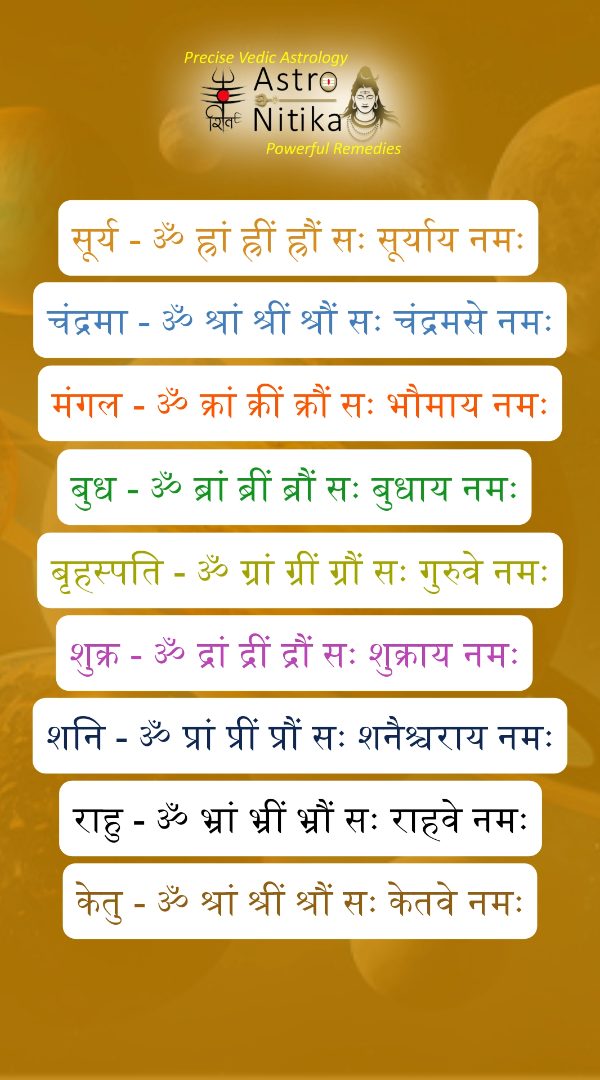 Precise Vedic Astrology
शिव
Astro
Nitika
Powerful Remedies
सूर्य - ॐ ह्रां ह्रीं ह्रौं सः सूर्याय नमः
चंद्रमा - ॐ श्रां श्रीं श्रौं सः चंद्रमसे नमः
मंगल - ॐ क्रां क्रीं क्रौं सः भौमाय नमः
बुध - ॐ ब्रां ब्रीं ब्रौं सः बुधाय नमः
बृहस्पति - ॐ ग्रां ग्रीं ग्रौं सः गुरुवे नमः
शुक्र - ॐ द्रां द्रीं द्रौं सः शुक्राय नमः
शनि - ॐ प्रां प्रीं प्रौं सः शनैश्चराय नमः
राहु - ॐ भ्रां भ्रीं भ्रौं सः राहवे नमः
केतु - ॐ श्रां श्रीं श्रौं सः केतवे नमः